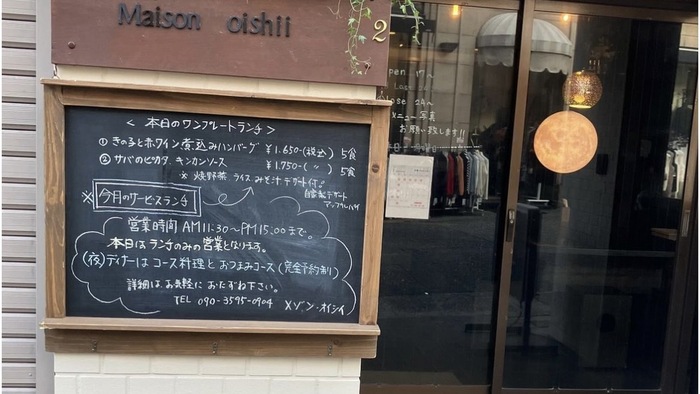 Maison oishii
2
<本日のワンプレートランチ>
① きのこと赤ワイン煮込みハンバーグ ¥1.650-(税込) 5食
② サバのピカタ キンカンソース ¥1.750-( 〃 ) 5食
※ 焼野菜 ライス みそ汁 デザート付♪
※ 今月のサービスランチ
自家製デザート
アップルパイ
営業時間 AM11:30~PM15:00まで。
本日はランチのみの営業となります。
(夜)ディナーはコース料理とおつまみコース(完全予約制)
詳細はお気軽におたずね下さい。
TEL 090-3595-0904 メゾン・オイシイ
Open 17~
Last
Close 24~
メニュー写真
お願い致します!!